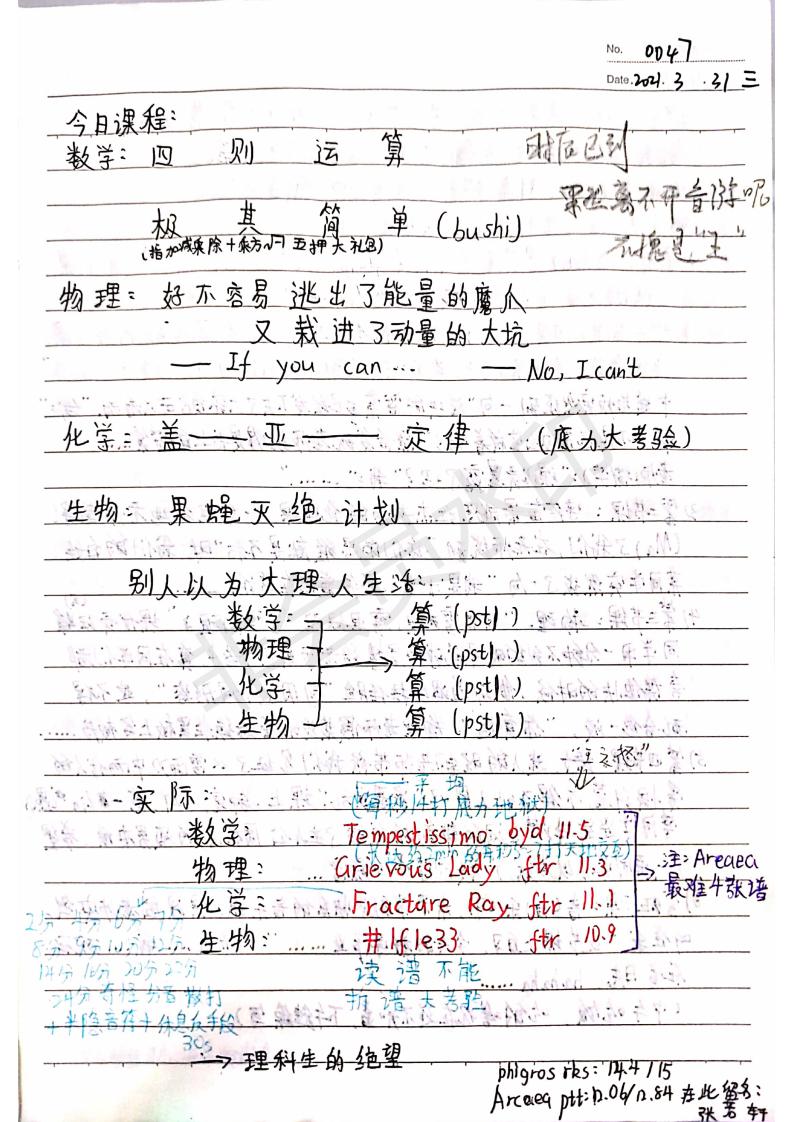 No. 0047
Date. 2021. 3 . 31 三
今日课程:
数学: 四 则 运 算
极 其 简 单 (bushi)
(指加减乘除+乘方√ 五押大礼包)
时后已到
果然离不开音游呢
不愧是“王”
物理: 好不容易逃出了能量的魔爪
又栽进了动量的大坑
—— If you can... —— No, I can't
化学: 盖——亚——定律 (底力大考验)
生物: 果蝇灭绝计划
别人以为大理人生活:
数学: 算 (pst/.)
物理 算 (pst/.)
化学 算 (pst/.)
生物 算 (pst/.)
实际:
平均
(每秒14打底力地狱)
数学: Tempestissimo byd 11.5
物理: Grievous Lady ftr 11.3
化学: Fracture Ray ftr 11.1
生物: ...... #1f1e33 ftr 10.9
注: Areaea
最难4张谱
2分 4分 6分 7分
8分 9分 10分 12分
14分 16分 20分 22分
24分 奇怪分音 散打
+半隐音符+休息反手段
30s
读谱不能......
折谱大考验
理科生的绝望
phlgros rks: 14.4/15
Arcaea ptt: 12.06/12.84 在此留名:
张 轩